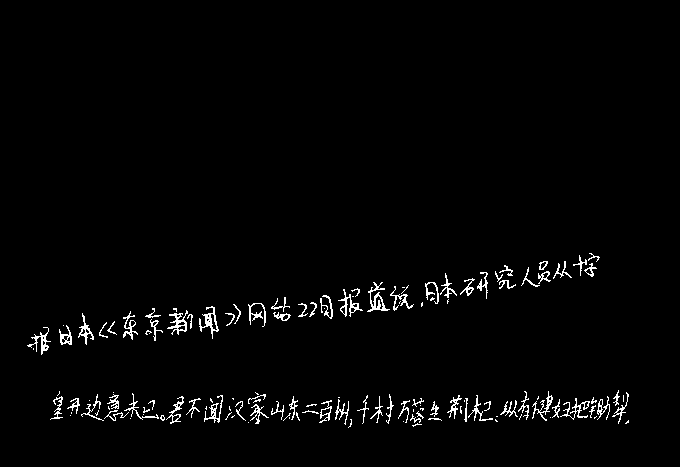 据日本《东京新闻》网站22日报道说,日本研究人员从十字
皇开边意未已。君不闻汉家山东二百州,千村万落生荆杞、纵有健妇把锄犁,